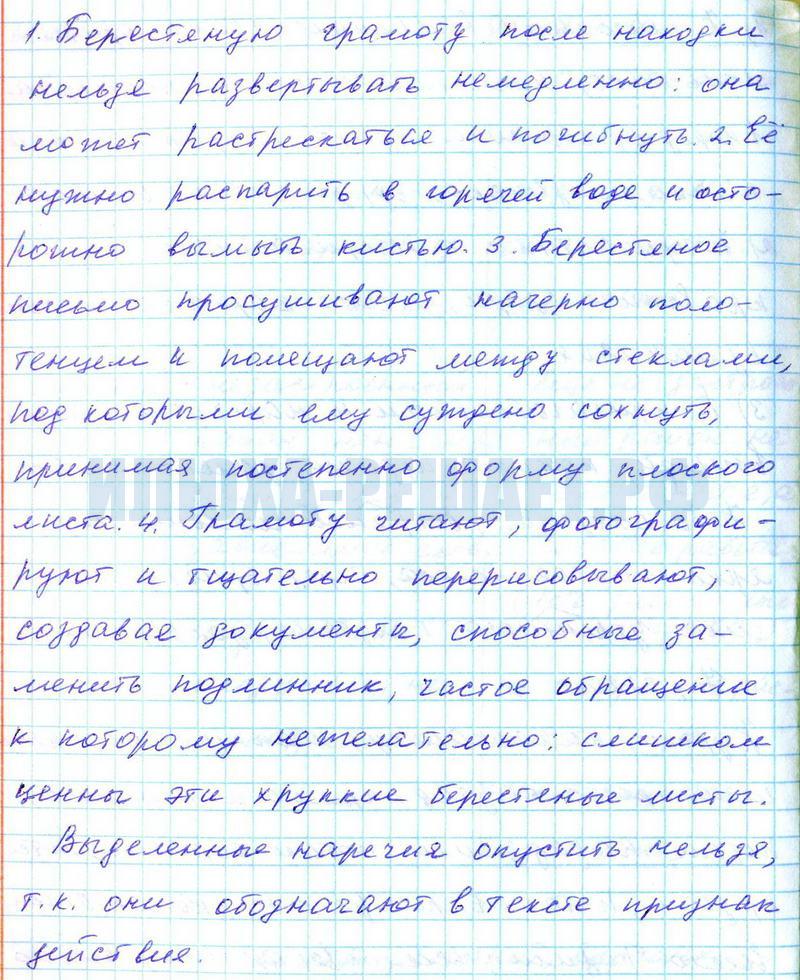 1. Берестяную грамоту после находки
нельзя развертывать немедленно: она
может растрескаться и погибнуть. 2. Её
нужно распарить в горячей воде и осто-
рожно вымыть кистью. 3. Берестяное
письмо просушивают начерно поло-
тенцем и помещают между стеклами,
под которыми ему суждено сохнуть,
принимая постепенно форму плоского
ИЛЮХА-РЕШАЕТ.РФ
листа. 4. Грамоту читают, фотографи-
руют и тщательно перерисовывают,
создавая документы, способные за-
менить подлинник, частое обращение
к которому нежелательно: слишком
ценны эти хрупкие берестяные листы.
Выделенные наречия опустить нельзя,
т.к. они обозначают в тексте признак
действия.